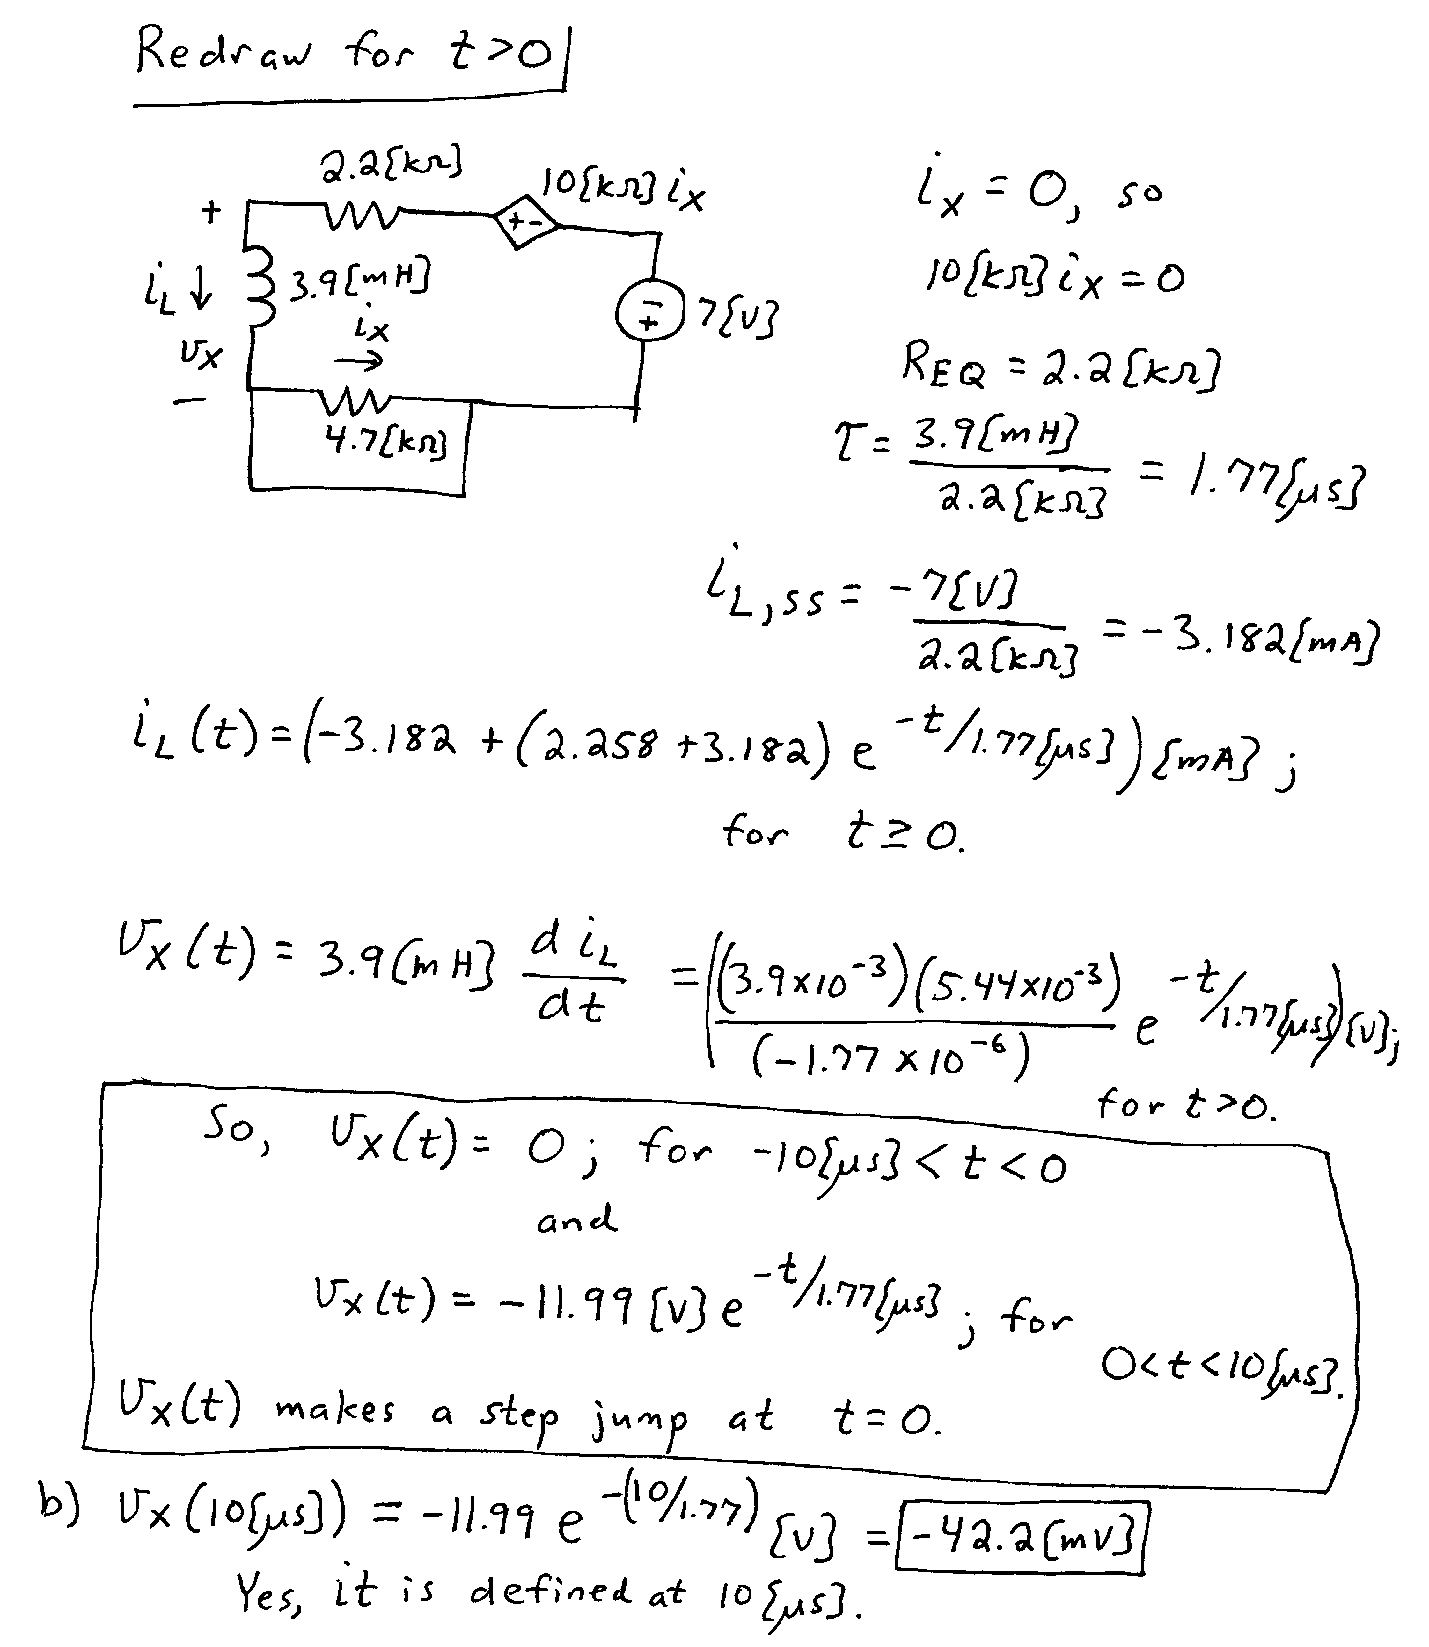 Redraw for t>0
2.2[kΩ]
10[kΩ] ix
+
+ -
iL ↓
3.9[mH]
vx
-
ix
→
4.7[kΩ]
-
+
7[V]
ix = 0, so
10[kΩ] ix = 0
REQ = 2.2[kΩ]
τ = 3.9[mH] / 2.2[kΩ] = 1.77[μs]
iL,ss = -7[V] / 2.2[kΩ] = -3.182[mA]
iL(t) = (-3.182 + (2.258 + 3.182) e^(-t/1.77[μs])) [mA] ;
for t ≥ 0.
vx(t) = 3.9[mH] diL/dt = ((3.9×10^-3)(5.44×10^-3) / (-1.77×10^-6) e^(-t/1.77[μs])) [V];
for t>0.
So, vx(t) = 0 ; for -10[μs] < t < 0
and
vx(t) = -11.99 [V] e^(-t/1.77[μs]) ; for
0<t<10[μs].
vx(t) makes a step jump at t=0.
b) vx(10[μs]) = -11.99 e^(-(10/1.77)) [V] = -42.2[mV]
Yes, it is defined at 10[μs].